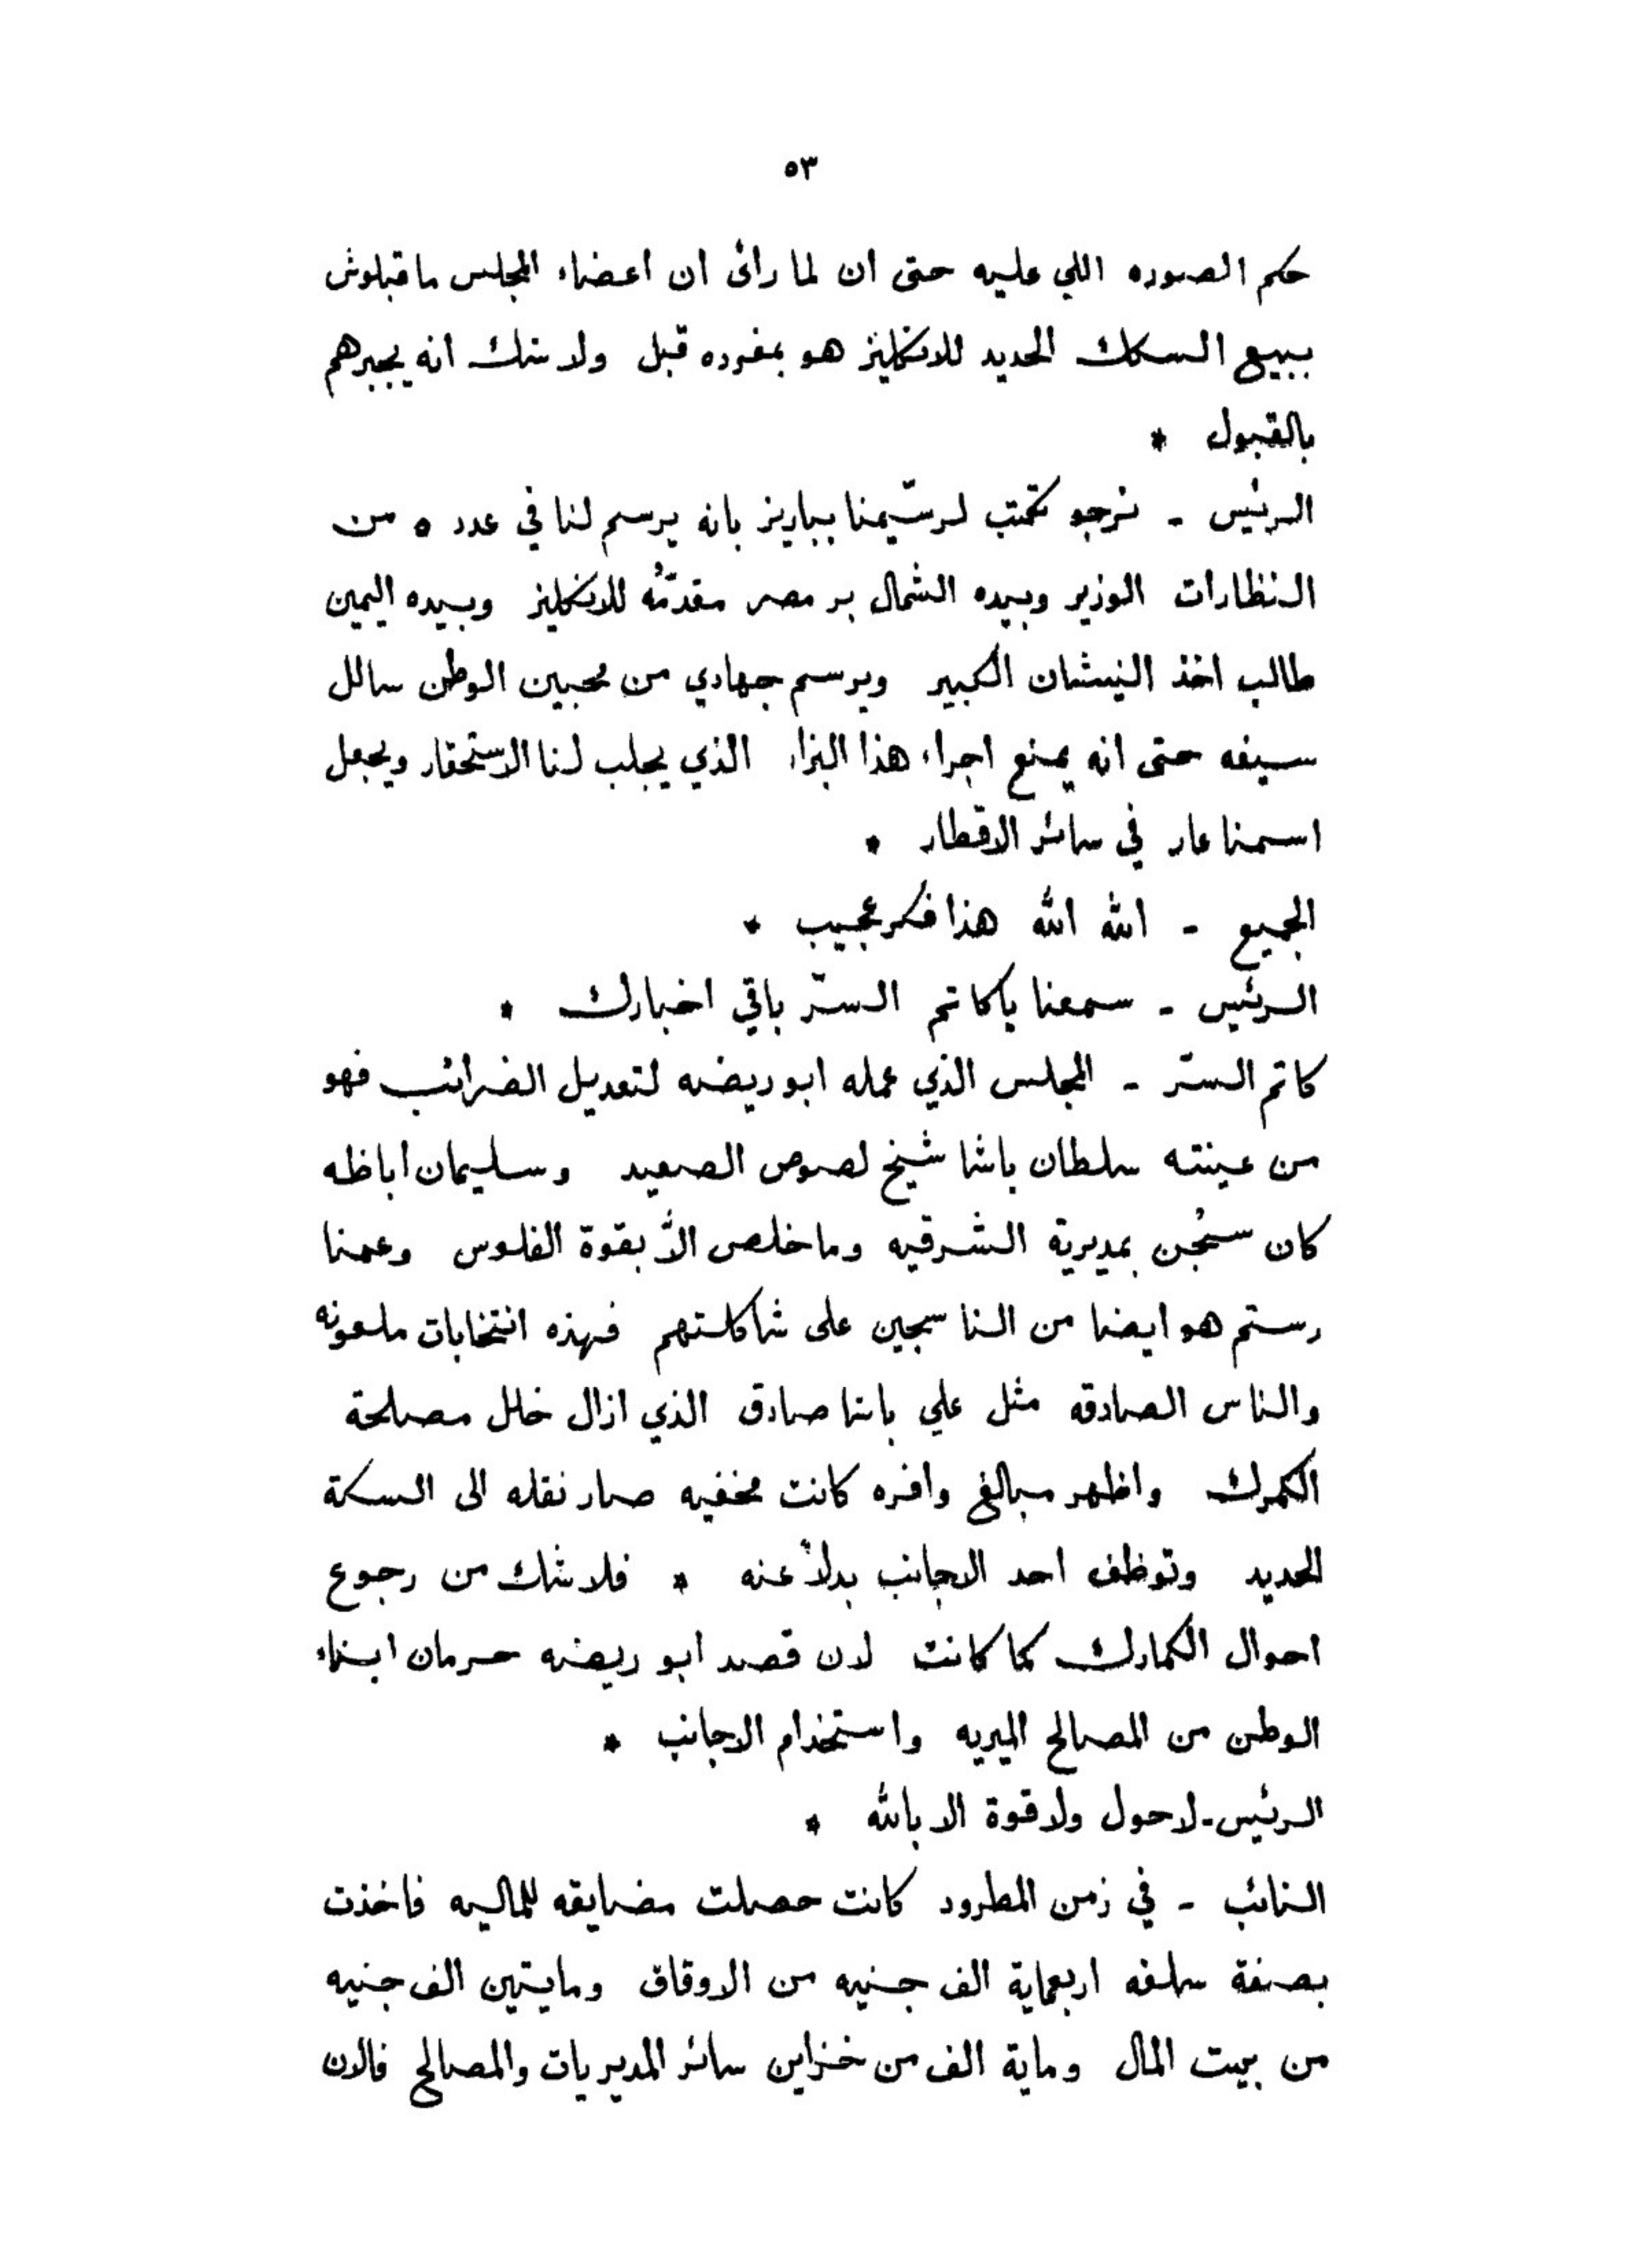 ٥٣
حكم الصوره اللي عليه حتى ان لما رائ ان اعضاء المجلس ما قبلوش
ببيع السكك الحديد للانكليز هو بمفرده قبل ولا شك انه يجبرهم
بالقبول *
الرئيس - نرجو تكتب لرسّيمنا بباريز بانه يرسم لنا في عدد ٥ من
النظارات الوزير وبيده الشمال بر مصر مقدّمُه للانكليز وبيده اليمين
طالب اخذ النيشان الكبير ويرسم جهادي من محبين الوطن سالل
سيفه حتى انه يمنع اجراء هذا البزار الذي يجلب لنا الاستحقار ويجعل
اسمنا عار في سائر الاقطار *
الجميع - الله الله هذا فكر عجيب *
الرئيس - سمعنا ياكاتم السرّ باقي اخبارك *
كاتم السرّ - المجلس الذي عمله ابو ريضه لتعديل الضرائب فهو
من عينته سلطان باشا شيخ لصوص الصعيد وسليمان اباظه
كان سُجن بمديرية الشرقيه وما خلص الاّ بقوة الفلوس وعمنا
رستم هو ايضا من الناسجين على شاكلتهم فهذه انتخابات ملعونه
والناس الصادقه مثل علي باشا صادق الذي ازال خلل مصلحة
الكمرك واظهر مبالغ وافره كانت مخفيه صار نقله الى السكة
الحديد وتوظف احد الاجانب بدلاً عنه * فلا شك من رجوع
احوال الكمارك كما كانت لان قصد ابو ريضه حرمان ابناء
الوطن من المصالح الميريه واستخدام الاجانب *
الرئيس - لاحول ولا قوة الا بالله *
النائب - في زمن المطرود كانت حصلت مضايقه للماليه فاخذت
بصفة سلفه اربعماية الف جنيه من الاوقاق ومايتين الف جنيه
من بيت المال وماية الف من خزاين سائر المديريات والمصالح فالان